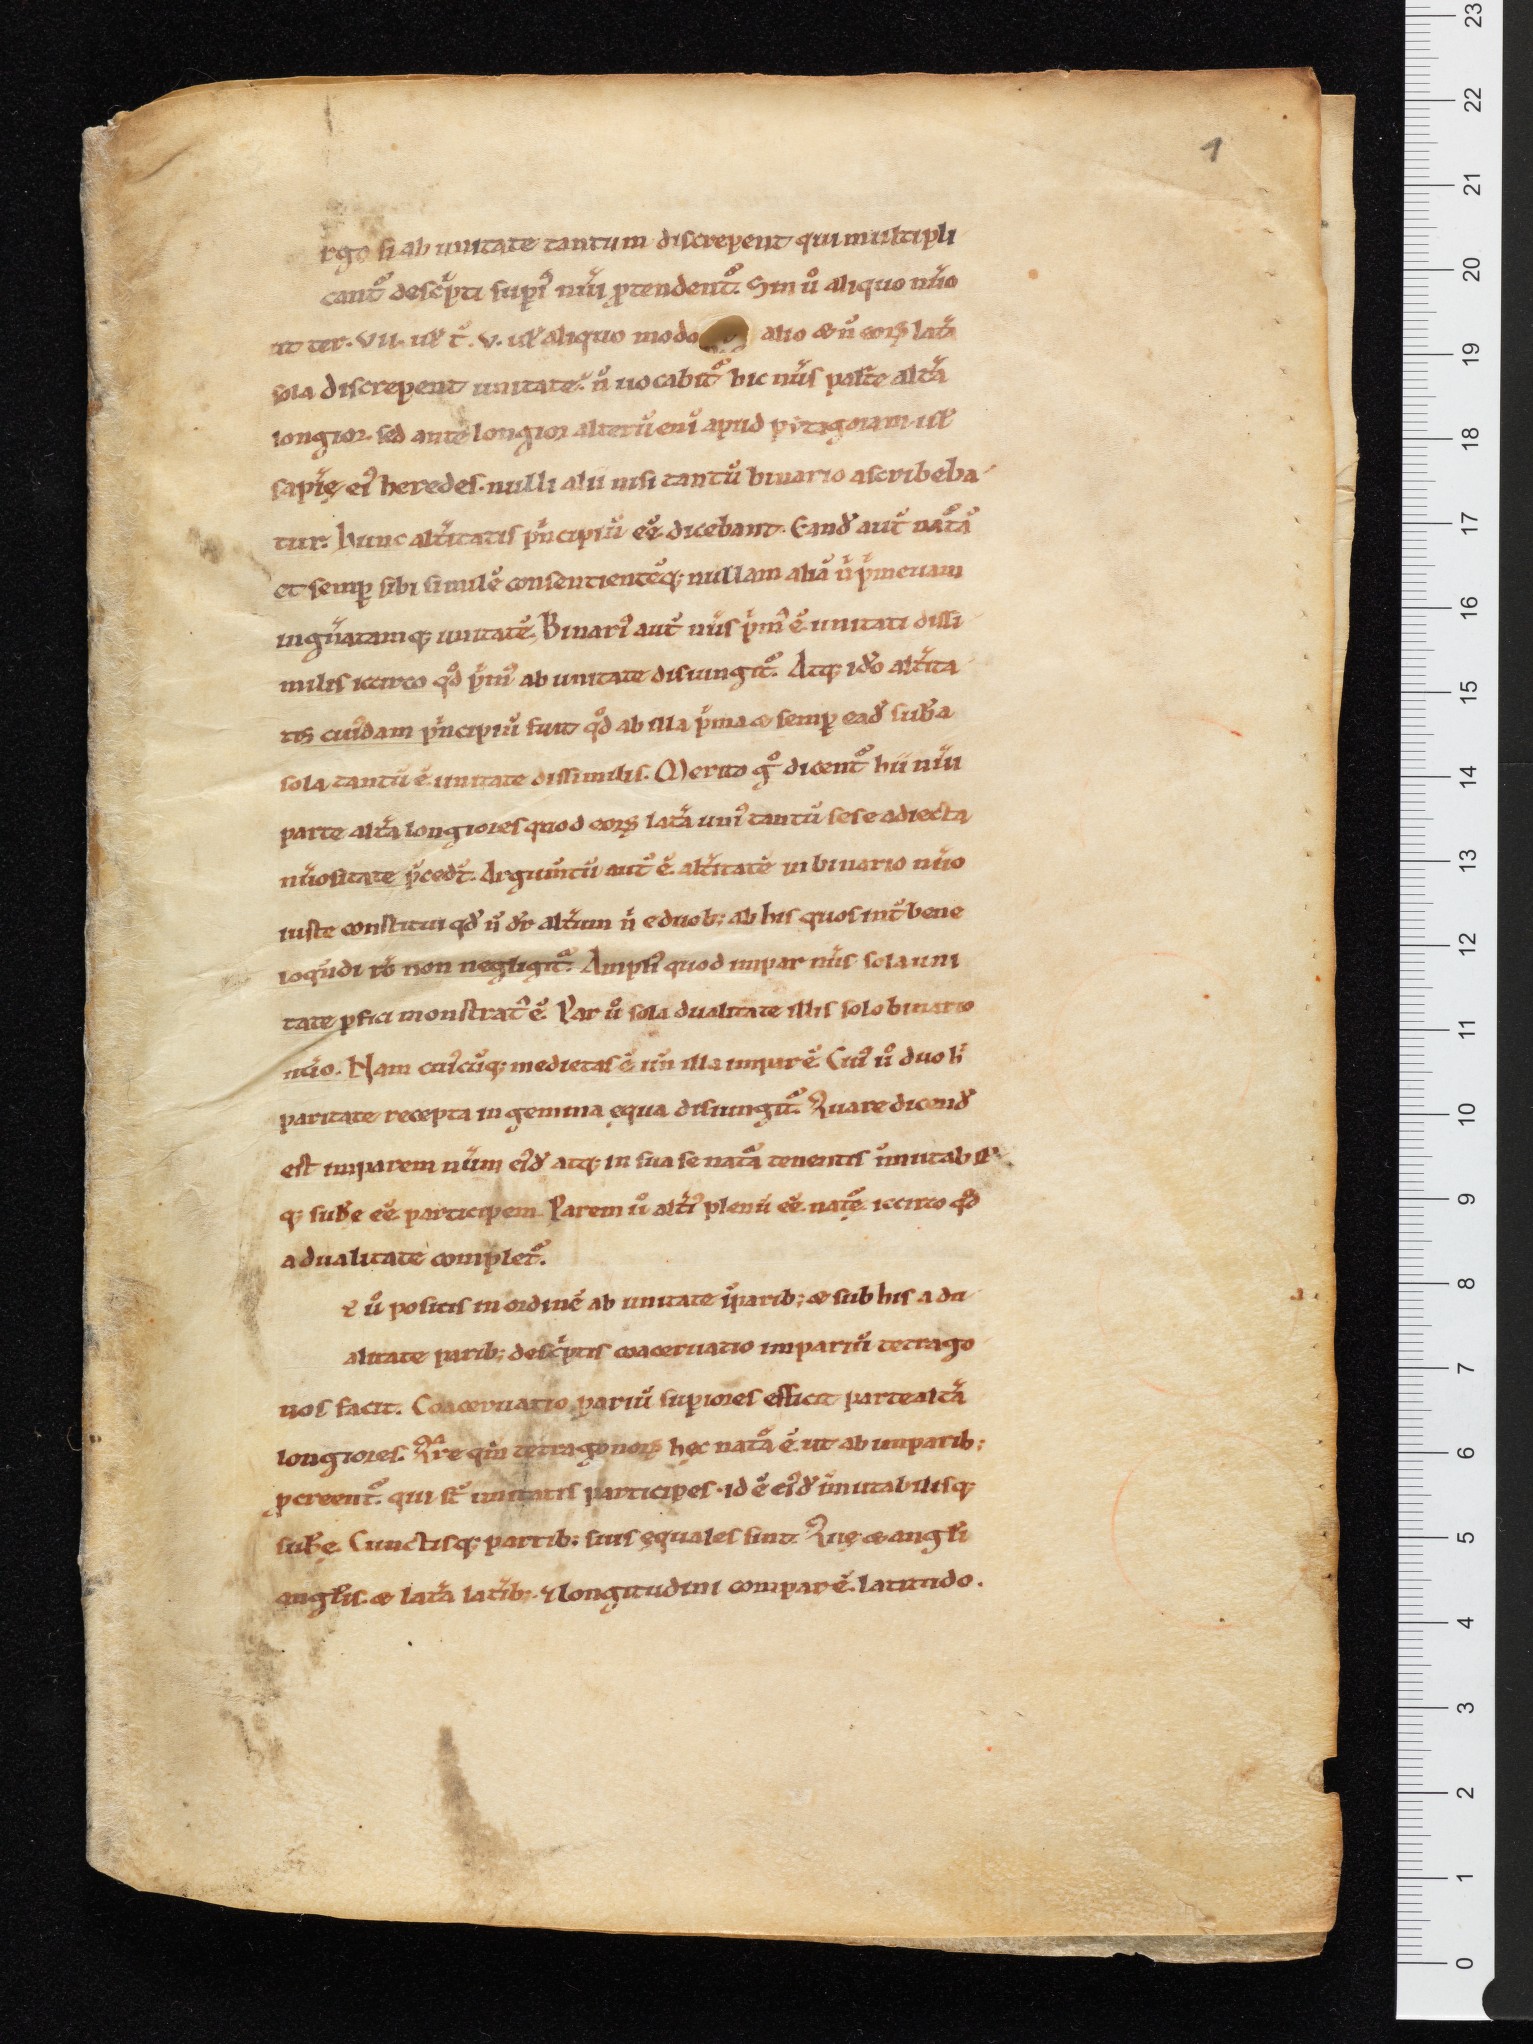 1
rgo si ab unitate tantum discrepent qui multipli
cant᷑ desc̓pti sup̲i᷑ nūi p̲tendent᷑. Sin ů aliquo nūo
ut ter. vii. uł t̄. v. uł aliquo modo alio & n̄ eoꝝ lat̄a
sola discrepent unitate. n̄ uocabit᷑ hic nūs parte alt̄a
longior. sed ante longior alterū eni apud pẏtagoram. uł
sapīę ei᷒ heredes. nulli alii nisi tantū binario ascribeba
tur. hunc alt̄itatis p̓ncipiū eē dicebant. Eand̄ aut̄ nat᷑ā
et semp̲ sibi similē consentientēq; nullam aliā n̄ p̓meuam
ingn̄atamq; unitatē. Binari᷒ aut̄ nūs p̓m᷒ ē unitati dissi
milis iccirco qđ p̓m᷒ ab unitate disiungit᷑. Atq; idō alt̄ita
tis cui᷒dam p̓ncipiū fuit qđ ab illa p̓ma & semp̲ ead̄ sub̄a
sola tantū ē unitate dissimilis. Merito gͦ dicent᷑ hii nūi
parte alt̄a longiores quod eoꝝ lat̄a uni᷒ tantū sese adiecta
nūositate p̄cedt̄. Argum̄tū aut̄ ē alt̄itatē in binario nūo
iuste constitui qđ n̄ dr̄ alt̄um n̄ e duob; ab his quos int̄ bene
loq̄ndi rō non negligit᷑. Ampli᷒ quod impar nūs sola uni
tate p̲fici monstrat᷒ ē. Par ů sola dualitate illis solo binario
nūo. Nam cui᷒cūq; medietas ē un̄ illa impar ē. Cui᷒ ů duo h̄
paritate recepta in gemina ęqua disiungit᷑. Quare dicend̄
est imparem nūm ei᷒đ atq; in sua se nat᷑a tenentis īmutabił
q; sub̄e eē participem. Parem ů alt̄i᷒ plenū eē nat᷑ę iccirco qđ
a dualitate complet᷑.
t ů positis in ordinē ab unitate īparib; & sub his a du
alitate parib; desc̓ptis coaceruatio impariū tetrago
nos facit. Coaceruatio pariū sup̲iores efficit parte alt̄a
longiores. Q̄re qm̄ tetragonoꝝ hęc nat᷑a ē ut ab imparib;
p̲creent᷑. qui st̄ unitatis participes. id ē ei᷒đ īmutabilisq;
sub̄ę. Cunctisq; partib; suis ęquales sint. Quę & angłi
angłis. & lat̄a lat̄ib; & longitudini compar ē. latitudo.